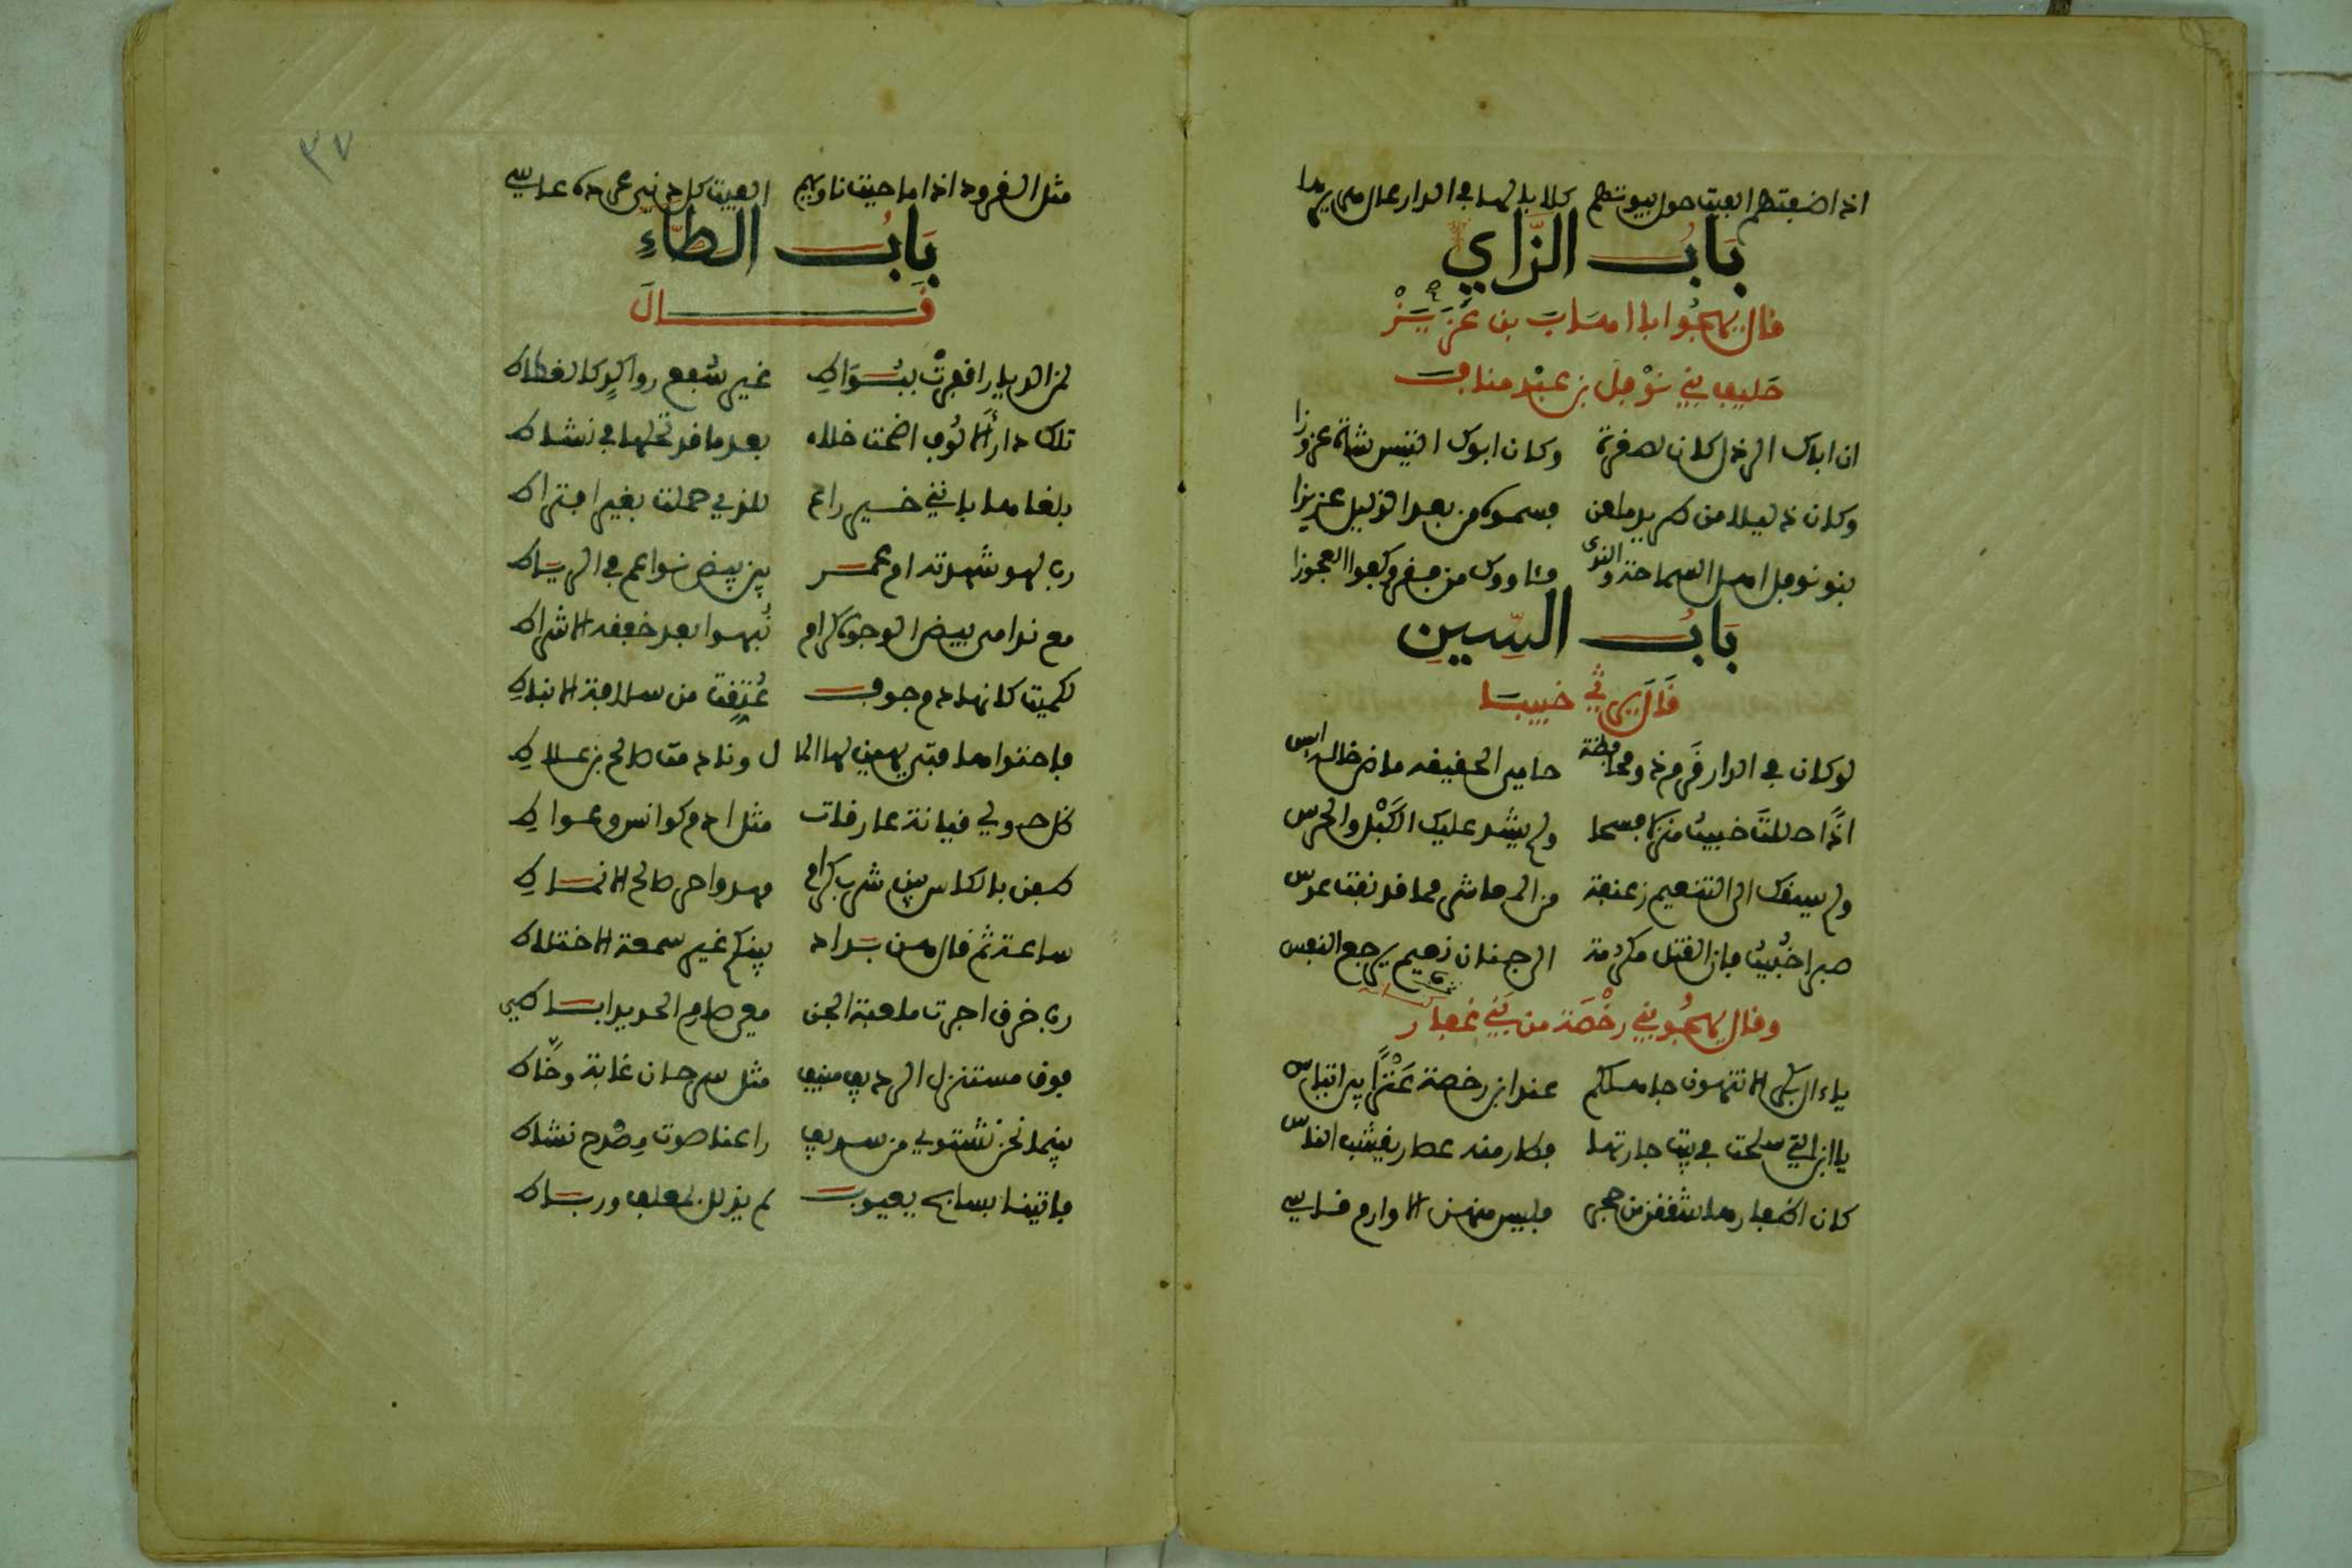 اذا ضفتهم الفيت حول بيوتهم كلابا لها في الدار عال هريرها
باب الزاي
قال يهجوا ابا اهاب بن عزيز
حليف بني نوفل بن عبد مناف
ان اباك الرذل كان لصفرة وكان ابوك التيس شاة عزوزا
وكان ذليلا من طريدا ملعن فسموه من بعد الذليل عزيزا
بنو نوفل اهل السماحة والندى
باب السين
قال يرثي خبيبا
لو كان في الدار قرم ذو محافظة حامي الحقيقة ماض خاله انس
اذا حللت خبيبا منزلا فسحا ولم يشد عليك الكبل والحرس
ولم يسقك الى التنعيم زعنفة من المعاشر مما قد نفت عدس
صبرا خبيب فان القتل مكرمة الى جنان نعيم يرجع النفس
وقال يهجو بني رخصة من بني غفار
يا ءال بكر الا تنهون جاهلكم عند ابن رخصة عنزا بين اتياس
يا ابن التي سلحت في بيت جارتها
كان اظفارها شققن من حجر فليس منهن الا وارم قاسي
٣٧
مثل القرود اذا ما جيت ناديهم الفيت كل دني عره عاسي
باب الطاء
قال
لمن الديار اقفرت ببواط غير سفع رواكد كالغطاط
تلك دار الالوف اضحت خلاء بعد ما قد تحلها في نشاط
بلغاها بانني خير راع للذي حملت بغير افتراط
رب لهو شهدته ام عمرو بين بيض نواعم في الرياط
مع ندامى بيض الوجوه كرام نبهوا بعد خفقة الاشراط
لكميت كانها دم جوف عتقت من سلافة الانباط
فاحتواها فتى يهين لها الما ل ونادمت صالح بن علاط
ظل حولي قيانة عازفات مثل ادم كوانس وعواط
طفن بالكاس بين شرب كرام مهدوا حر صالح الانماط
ساعة ثم قال هن بداد بينكم غير سمعة الاختلاط
رب خرق اجزت ملعبة الجن معي صارم الحديد اباطي
فوق مستنزل الرديف منيف مثل سرحان غابة وخاط
بينما نحن نشتوي من سديف راعنا صوت مصدح نشاط
فاتينا بسابح يعبوب لم يذلل بمعلف ورباط